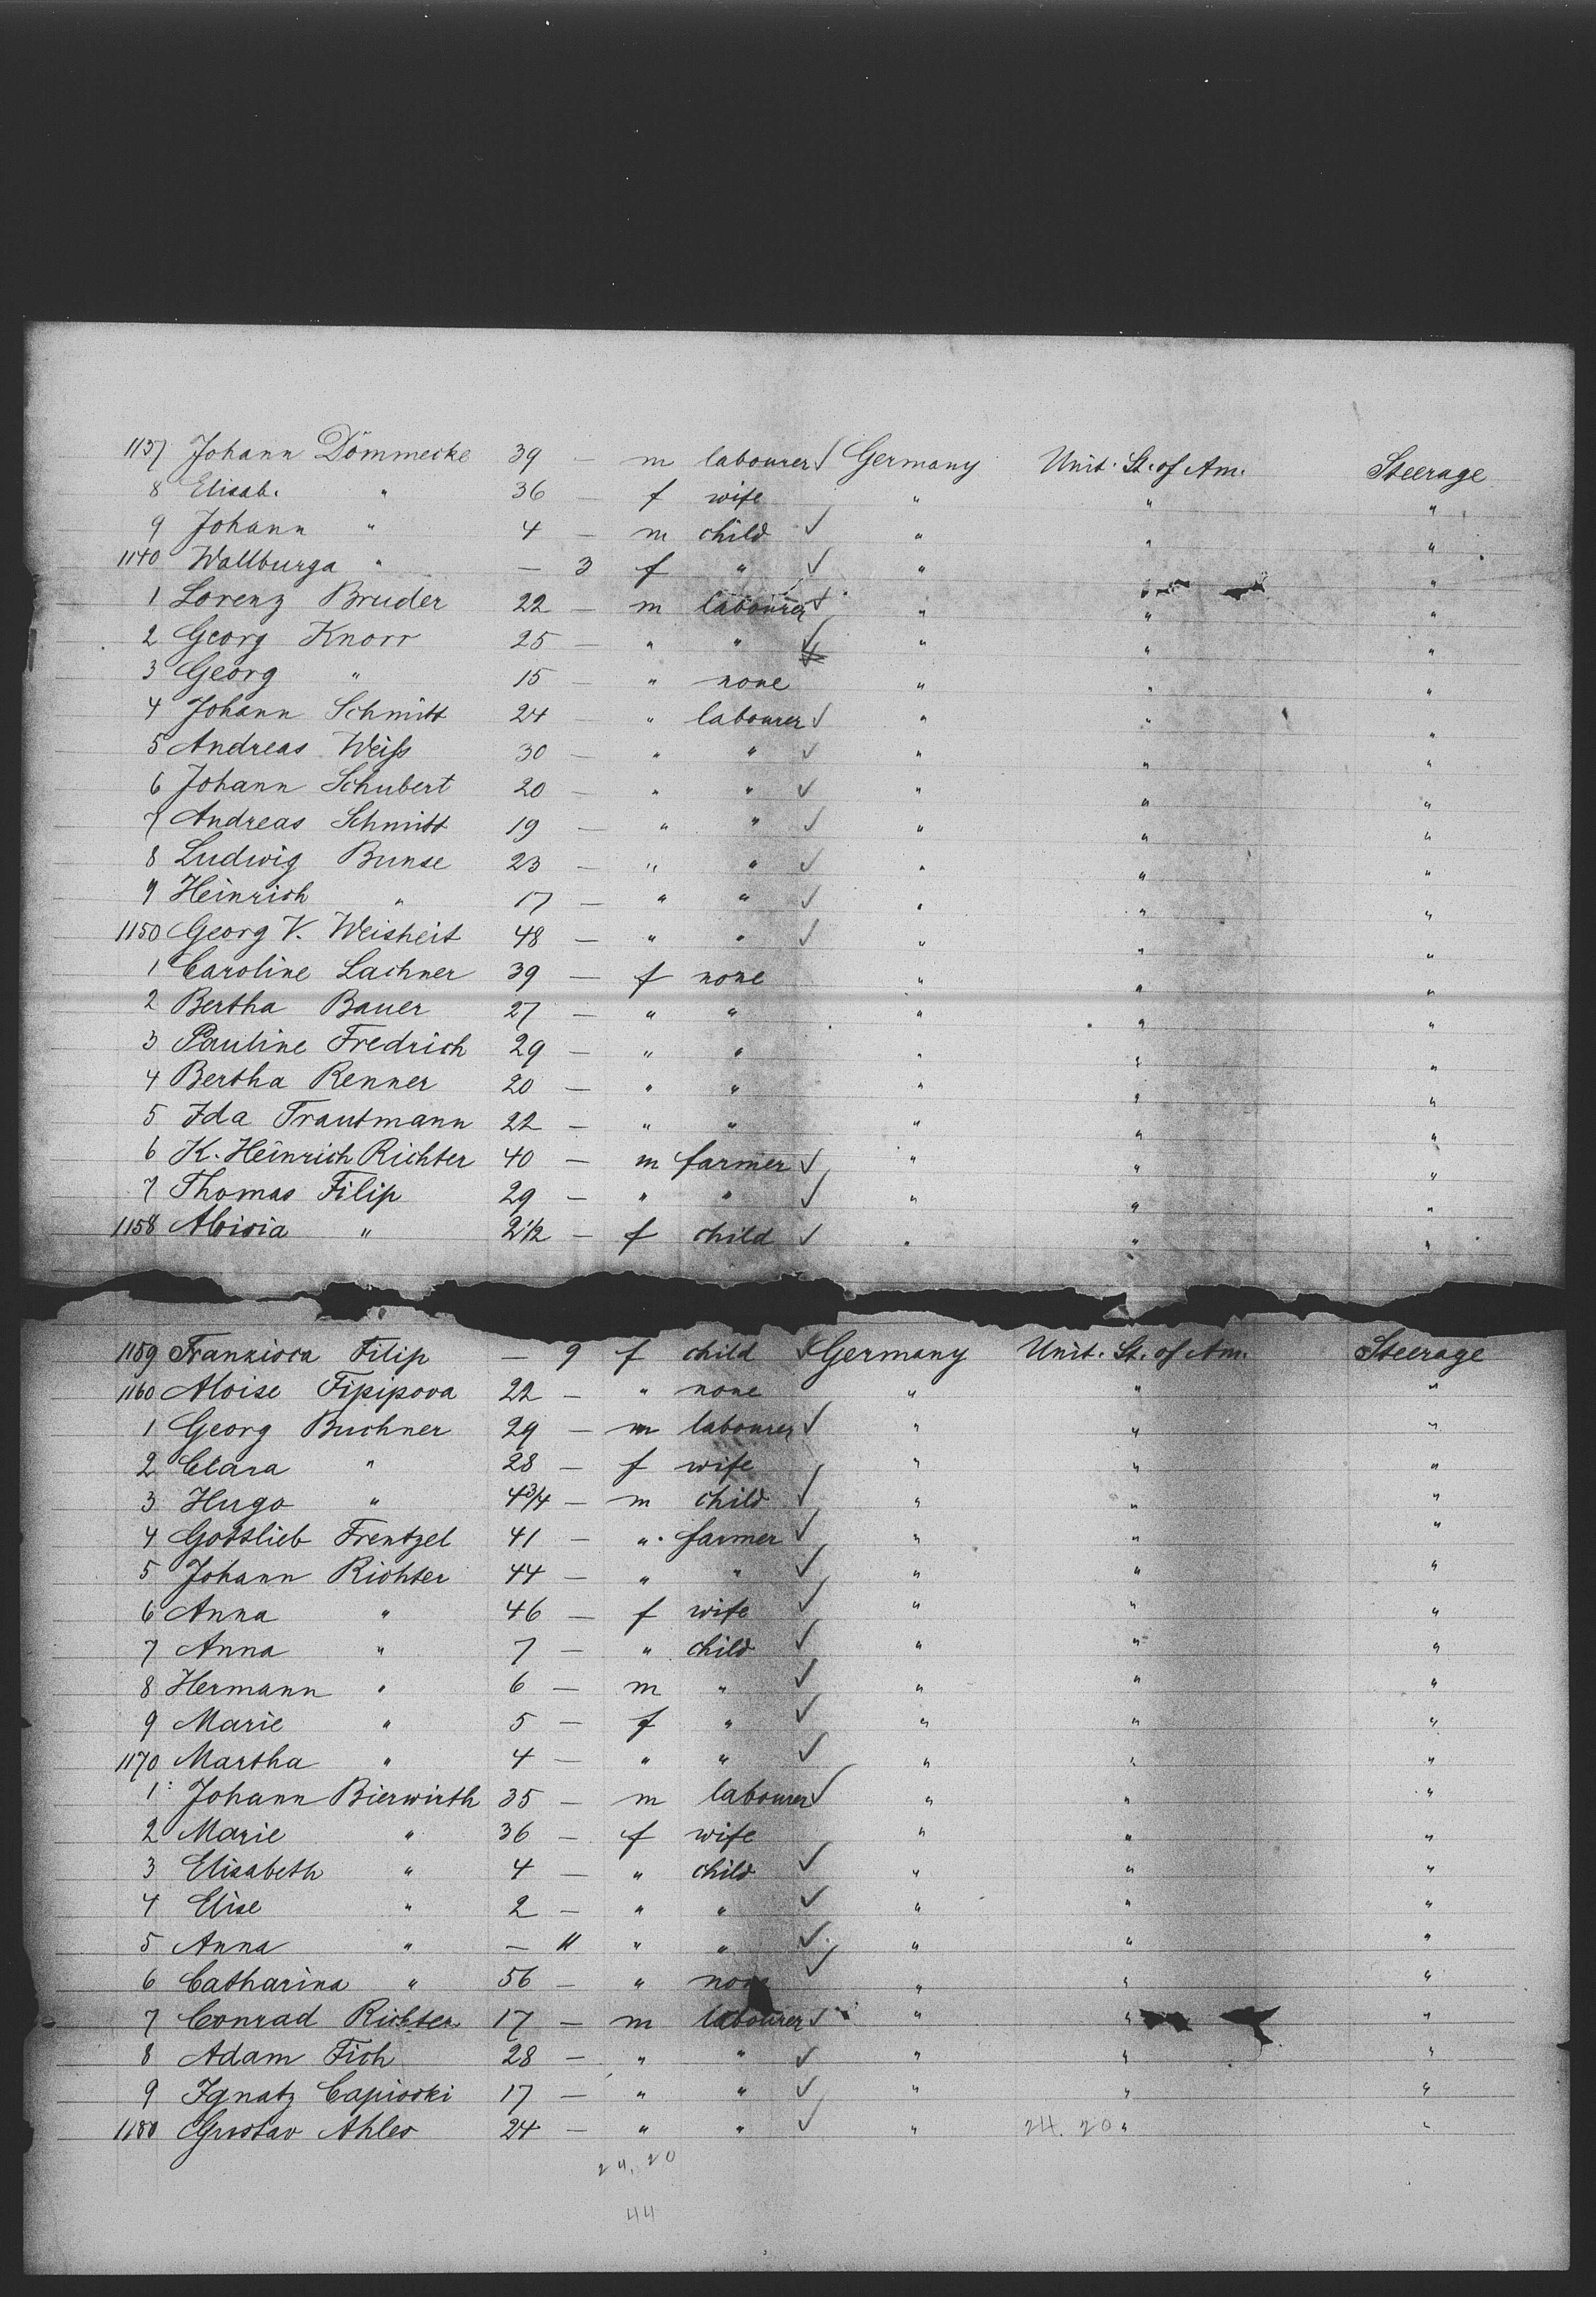 1137 Johann Dömmecke 39 — m labourer ✓ Germany Unit. St. of Am. Steerage
8 Elisab. " 36 — f wife " " "
9 Johann " 4 — m child ✓ " " "
1140 Wallburga " — 3 f " ✓ " " "
1 Lorenz Bruder 22 — m labourer ✓ " " "
2 Georg Knorr 25 — " " ✓ " " "
3 Georg " 15 — " none " " "
4 Johann Schmitt 24 — " labourer ✓ " " "
5 Andreas Weiß 30 — " " ✓ " " "
6 Johann Schubert 20 — " " ✓ " " "
7 Andreas Schmitt 19 — " " ✓ " " "
8 Ludwig Bunse 23 — " " ✓ " " "
9 Heinrich " 17 — " " ✓ " " "
1150 Georg V. Weisheit 48 — " " ✓ " " "
1 Caroline Lachner 39 — f none " " "
2 Bertha Bauer 27 — " " " " "
3 Pauline Fredrich 29 — " " " " "
4 Bertha Renner 20 — " " " " "
5 Ida Trautmann 22 — " " " " "
6 K. Heinrich Richter 40 — m farmer ✓ " " "
7 Thomas Filip 29 — " " ✓ " " "
1158 Aloisia " 2 1/2 — f child ✓ " " "
1159 Franzisca Filip — 9 f child ✓ Germany Unit. St. of Am. Steerage
1160 Aloise Fipipova 22 — " none " " "
1 Georg Buchner 29 — m labourer ✓ " " "
2 Clara " 28 — f wife " " "
3 Hugo " 4 3/4 — m child ✓ " " "
4 Gottlieb Frentzel 41 — " farmer ✓ " " "
5 Johann Richter 44 — " " ✓ " " "
6 Anna " 46 — f wife ✓ " " "
7 Anna " 7 — " child ✓ " " "
8 Hermann " 6 — m " ✓ " " "
9 Marie " 5 — f " ✓ " " "
1170 Martha " 4 — " " ✓ " " "
1 Johann Bierwirth 35 — m labourer ✓ " " "
2 Marie " 36 — f wife " " "
3 Elisabeth " 4 — " child ✓ " " "
4 Elise " 2 — " " ✓ " " "
5 Anna " — 11 " " ✓ " " "
6 Catharina " 56 — " none ✓ " " "
7 Conrad Richter 17 — m labourer ✓ " " "
8 Adam Fich 28 — " " ✓ " " "
9 Ignatz Capioski 17 — " " ✓ " " "
1180 Gustav Ahles 24 — " " ✓ " 24. 20 " "
24. 20
44